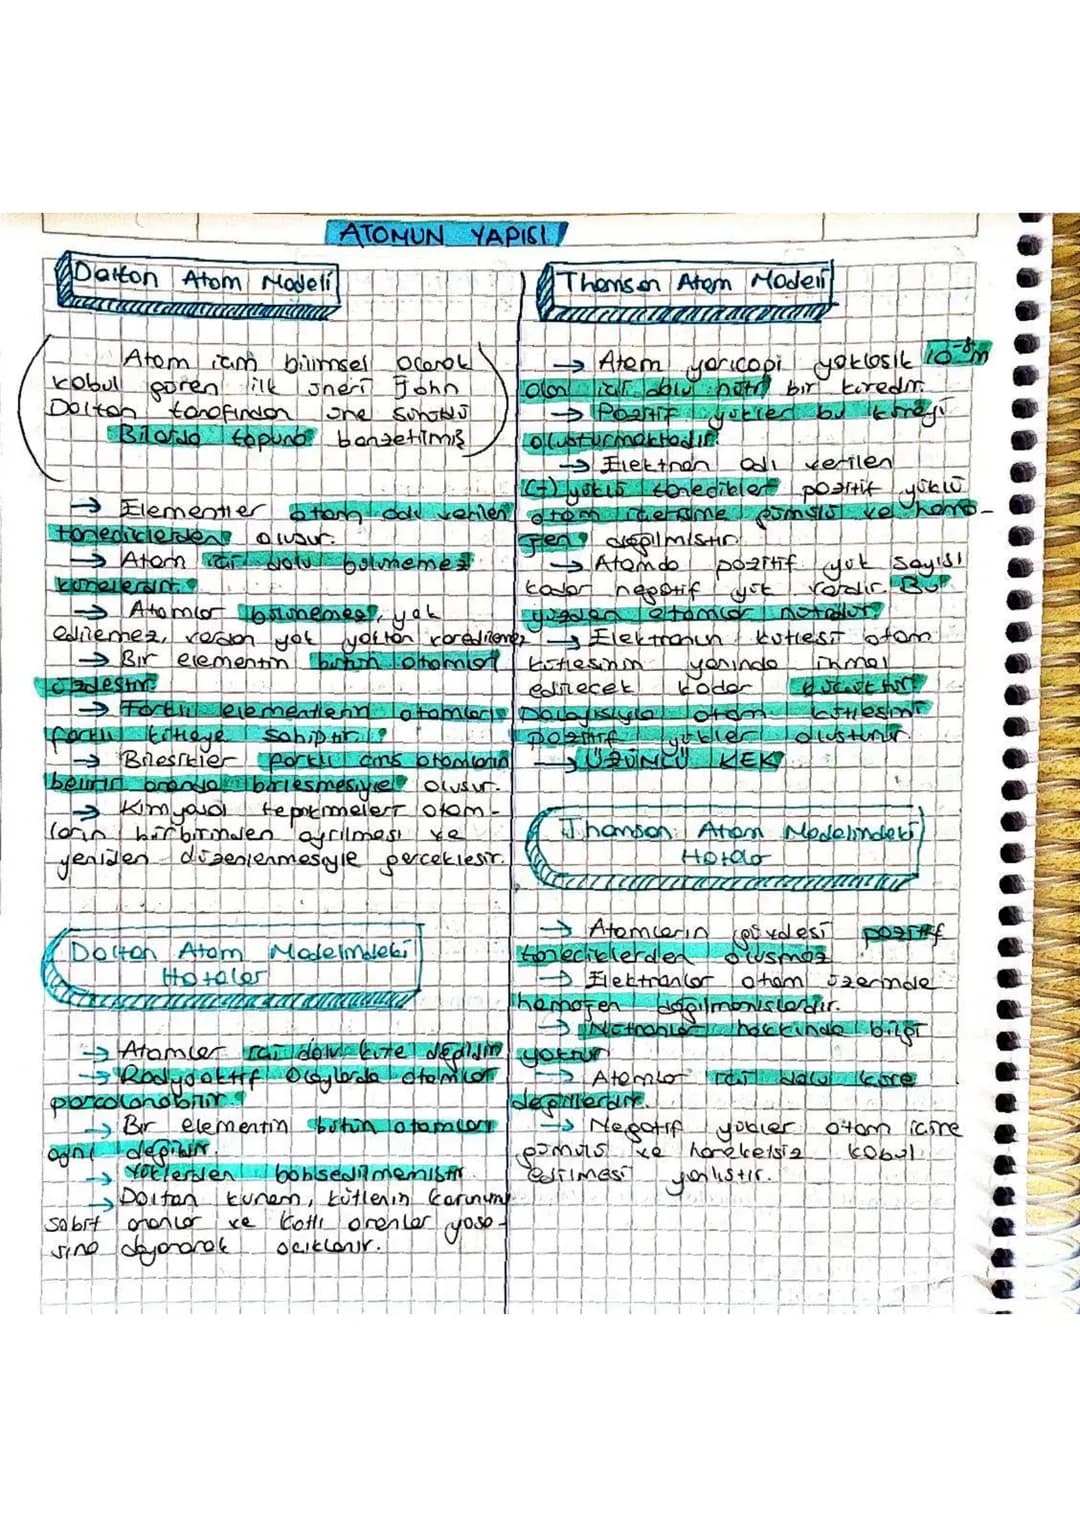 ATOMUN YAPISI
Dalton Atom Modeli
Atom için bilimsel olarak
kabul gören ilk öneri John
Dalton tarafından öne sürüldü
Bilardo topuna benzetilmiş
→ Elementler atom adı verilen
taneciklerden oluşur.
→ Atom içi dolu bölünemez
kürelerdir.
→ Atomlar bölünemez, yok
edilemez, vardan yok yoktan varedilemez
→ Bir elementin bütün atomları
özdeştir.
→ Farklı elementlerin atomları
farklı kütleye sahiptir.
→ Bileşikler farklı cins atomların
belirli oranda birleşmesiyle oluşur.
→ Kimyasal tepkimeler atom-
ların birbirinden ayrılması ve
yeniden düzenlenmesiyle gerçekleşir.
Dalton Atom Modelindeki
Hatalar
→ Atomlar içi dolu küre değildir
→ Radyoaktif olaylarda atomlar
parçalanabilir.
→ Bir elementin bütün atomları
aynı değildir.
→ Yüklerden bahsedilmemiştir.
→ Dalton kuramı, kütlenin korunumu
sabit oranlar ve katlı oranlar yasa-
sına dayanarak açıklanır.
Thomson Atom Modeli
→ Atom yarıçapı yaklaşık 10⁻⁸m
olan içi dolu nötr bir küredir.
→ Pozitif yükler bu küreyi
oluşturmaktadır.
→ Elektron adı verilen
(-) yüklü tanecikler pozitif yüklü
atom içerisine gömülü ve homo-
jen dağılmıştır.
→ Atomda pozitif yük sayısı
kadar negatif yük vardır. Bu
yüzden atomlar nötrdür.
→ Elektronun kütlesi atom
kütlesinin yanında ihmal
edilecek kadar küçüktür.
Dolayısıyla atom kütlesini
pozitif yükler oluşturur.
→ ÜZÜMLÜ KEK
Thomson Atom Modelindeki
Hatalar
→ Atomların gövdesi pozitif
taneciklerden oluşmaz
→ Elektronlar atom üzerinde
homojen dağılmamışlardır.
→ Nötronlar hakkında bilgi
yoktur
→ Atomlar içi dolu küre
değillerdir.
→ Negatif yükler atom içine
gömülü ve hareketsiz kabul
edilmesi yanlıştır.